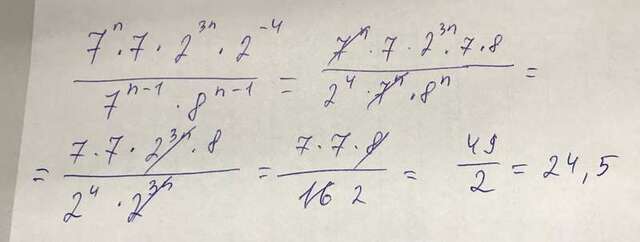 7ⁿ · 7 · 2³ⁿ · 2⁻⁴ / 7ⁿ⁻¹ · 8ⁿ⁻¹ = 7ⁿ · 7 · 2³ⁿ · 7 · 8 / 2⁴ · 7ⁿ · 8ⁿ =
= 7 · 7 · 2³ⁿ · 8 / 2⁴ · 2³ⁿ = 7 · 7 · 8 / 16 2 = 49 / 2 = 24,5